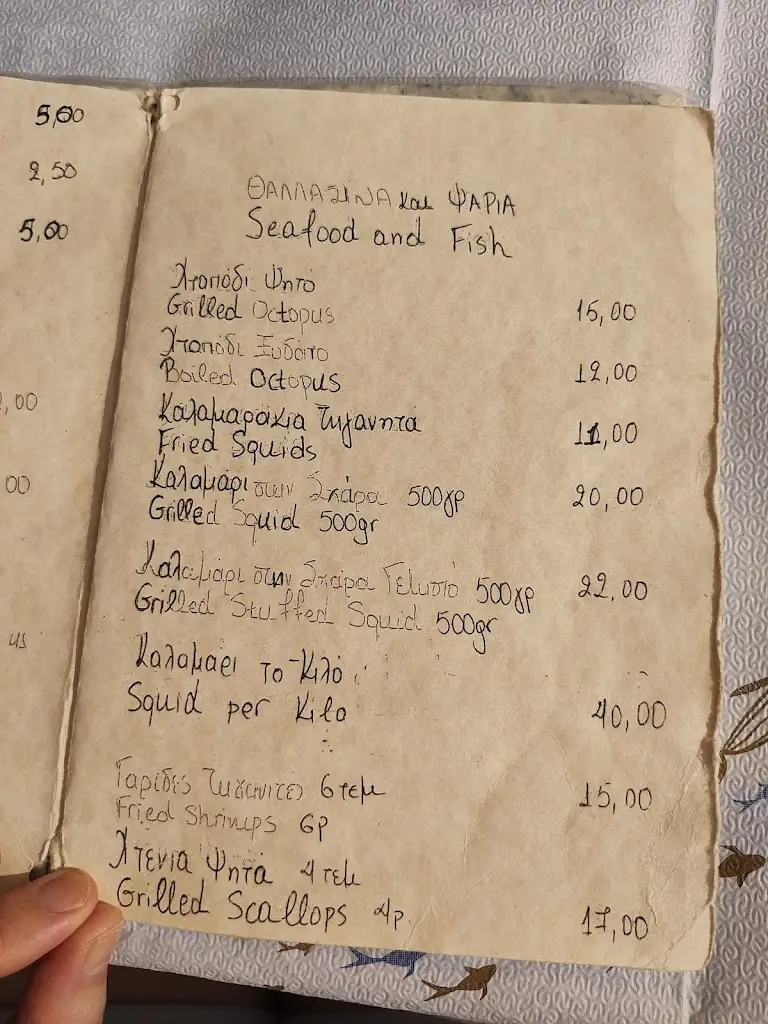 5,00
2,50
5,00
,00
00
ΘΑΛΛΑΣΙΝΑ και ΨΑΡΙΑ
Seafood and Fish
Χταπόδι Ψητό
Grilled Octopus 15,00
Χταπόδι Ξυδάτο
Boiled Octopus 12,00
Καλαμαράκια Τηγανητά
Fried Squids 11,00
Καλαμάρι στην Σχάρα 500γρ 20,00
Grilled Squid 500gr
Καλαμάρι στην Σχάρα Γεμιστό 500γρ 22,00
Grilled Stuffed Squid 500gr
Καλαμάρι το Κιλό
Squid per Kilo 40,00
Γαρίδες Τηγανιτές 6 τεμ 15,00
Fried Shrimps 6p
Χτένια Ψητά 4 τεμ
Grilled Scallops 4p. 17,00